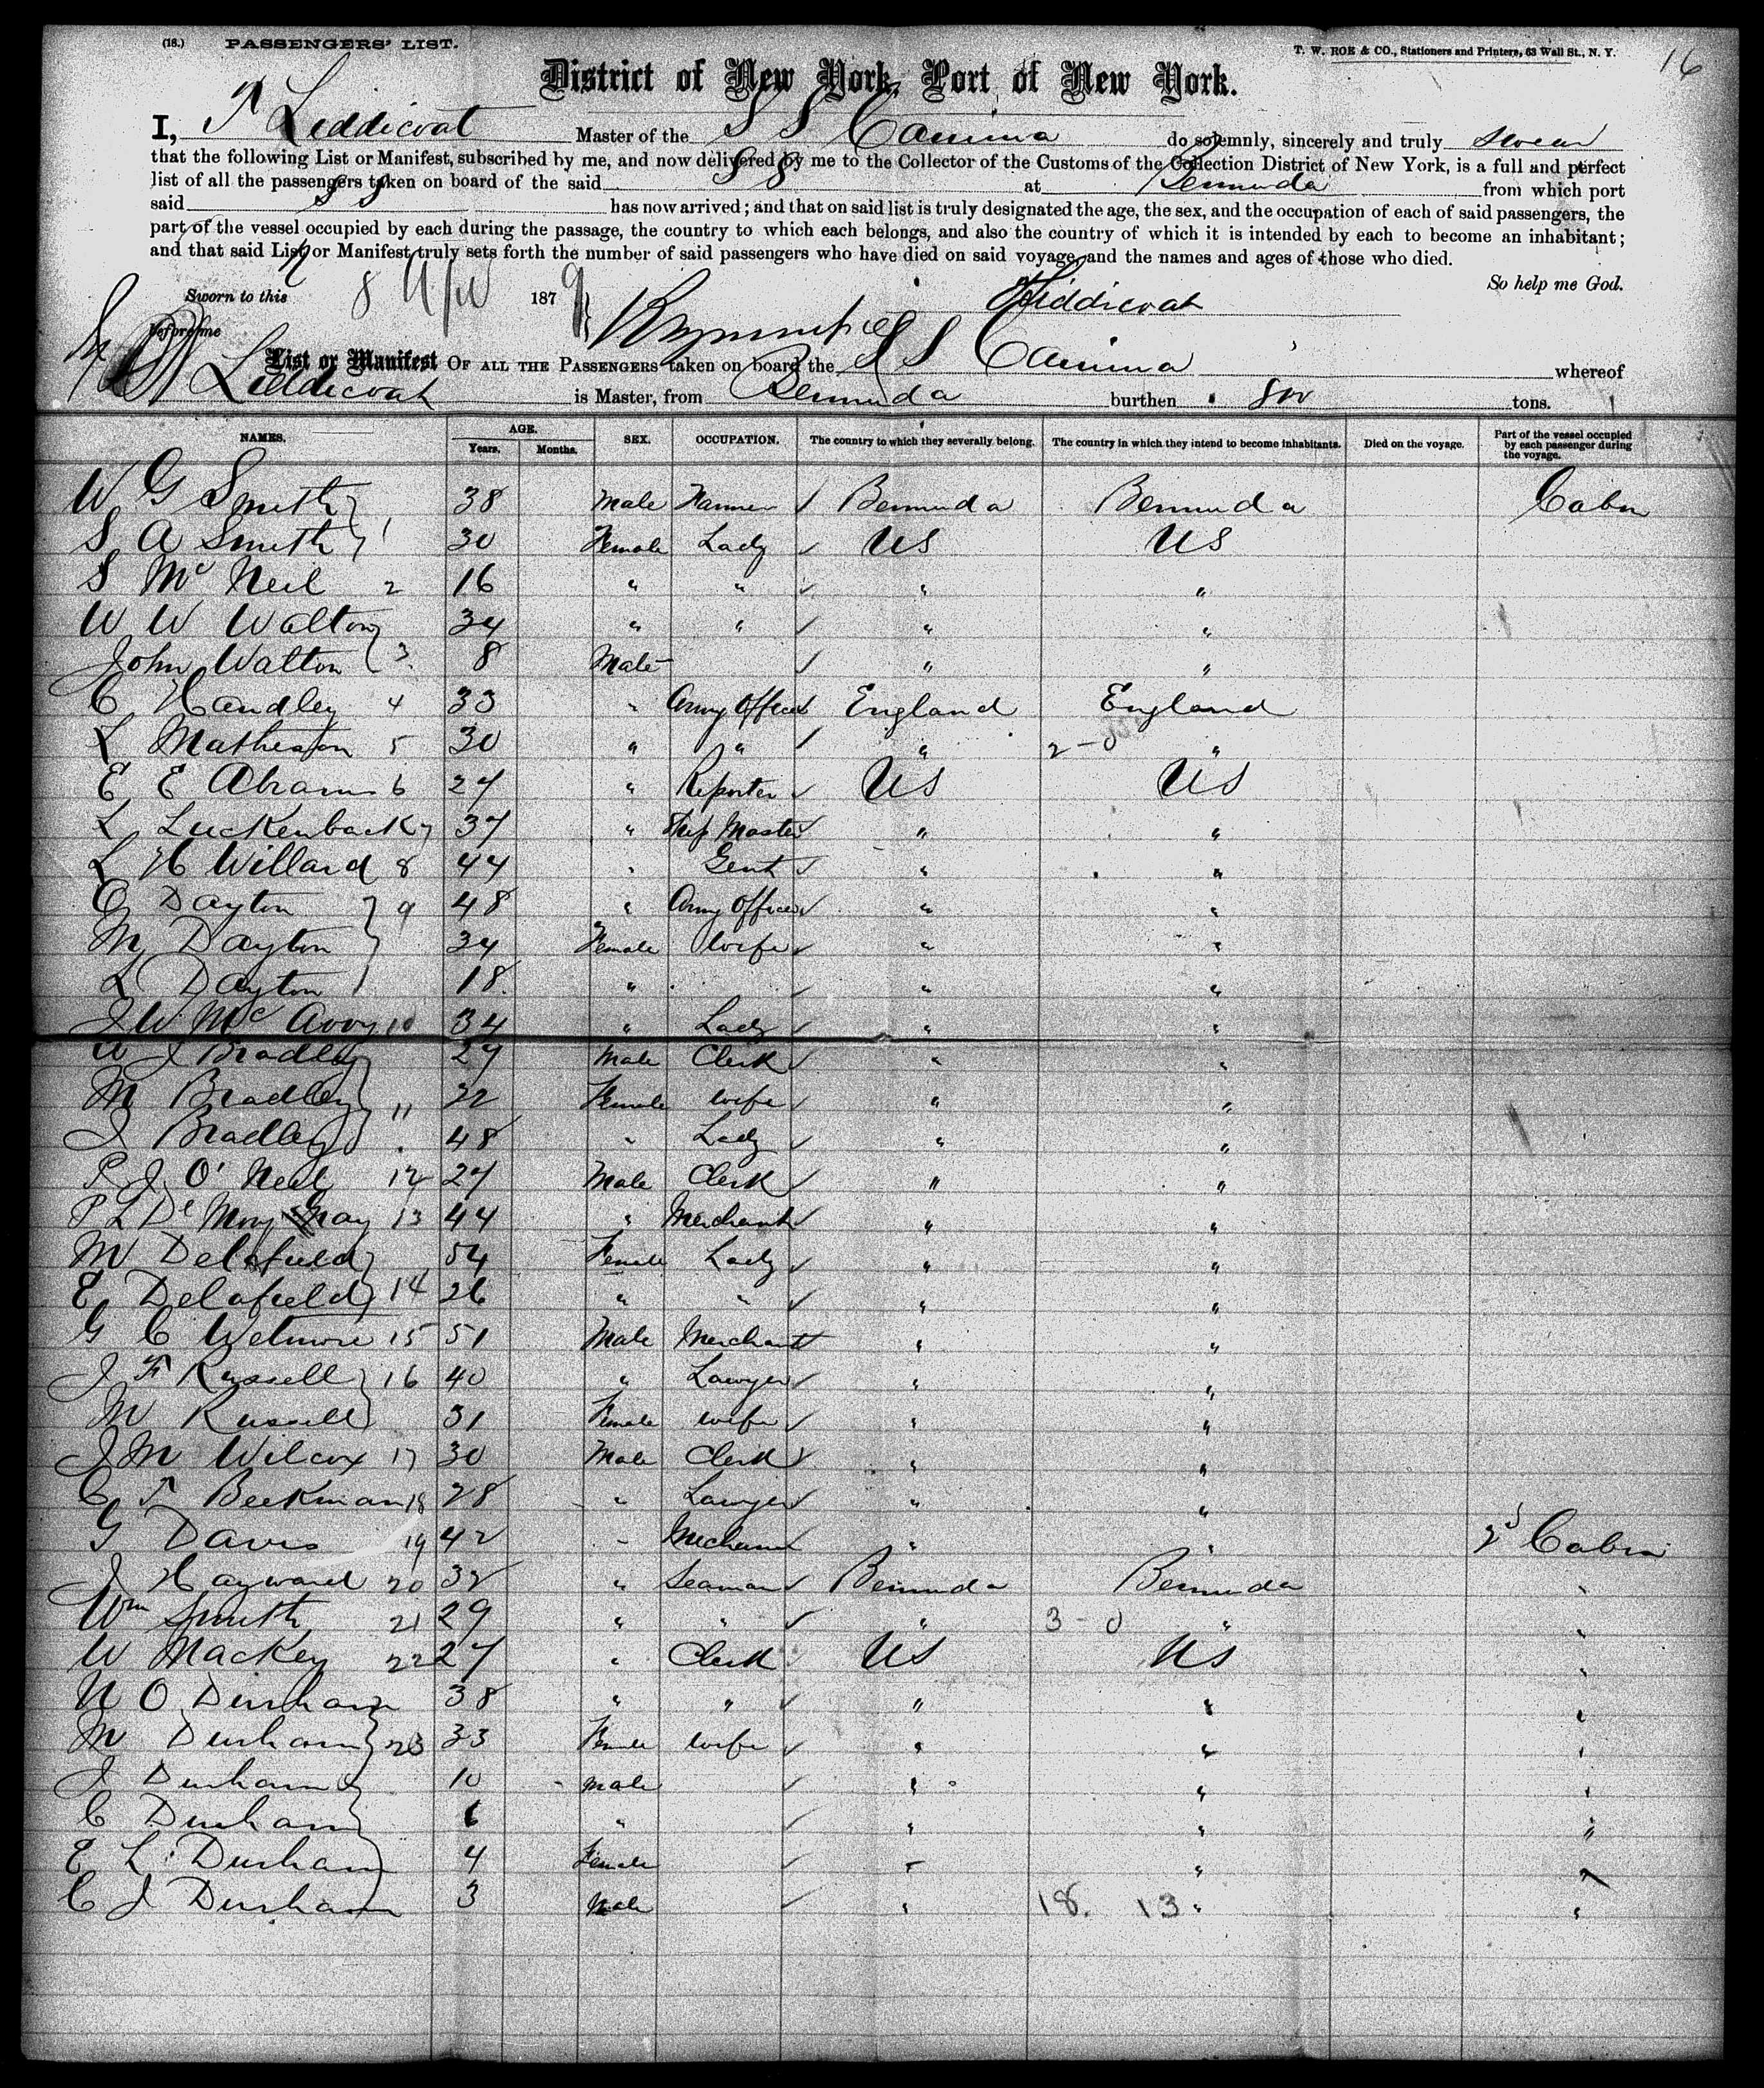 (18.) PASSENGERS' LIST. T. W. ROE & CO., Stationers and Printers, 63 Wall St., N. Y. 16
District of New York, Port of New York.
I, Liddicoat Master of the S S Canima do solemnly, sincerely and truly swear
that the following List or Manifest, subscribed by me, and now delivered by me to the Collector of the Customs of the Collection District of New York, is a full and perfect
list of all the passengers taken on board of the said S S at Bermuda from which port
said S S has now arrived; and that on said list is truly designated the age, the sex, and the occupation of each of said passengers, the
part of the vessel occupied by each during the passage, the country to which each belongs, and also the country of which it is intended by each to become an inhabitant;
and that said List or Manifest truly sets forth the number of said passengers who have died on said voyage, and the names and ages of those who died.
So help me God.
Sworn to this 8 April 1879 Liddicoat
before me
List or Manifest OF ALL THE PASSENGERS taken on board the S S Canima whereof
Liddicoat is Master, from Bermuda burthen tons.
NAMES. AGE. Years. Months. SEX. OCCUPATION. The country to which they severally belong. The country in which they intend to become inhabitants. Died on the voyage. Part of the vessel occupied by each passenger during the voyage.
W G Smith 38 Male Farmer Bermuda Bermuda Cabin
S A Smith 1 30 Female Lady US US
S Mc Neil 2 16 " " " "
W W Walton 34 " " " "
John Walton 3 8 Male " "
C Handley 4 33 " Army Officer England England
L Matheson 5 30 " " " 2-0 "
E E Abrams 6 27 " Reporter US US
L Luckenback 7 37 " Ship Master " "
L H Willard 8 44 " Gent " "
O Dayton 9 48 " Army Officer " "
M Dayton 34 Female Wife " "
L Dayton 18 " " "
J W Mc Avoy 10 34 " Lady " "
W J Bradley 27 Male Clerk " "
M Bradley 11 22 Female wife " "
J Bradley 48 " Lady " "
P J O' Neil 12 27 Male Clerk " "
P L De 13 44 " Merchant " "
M Delafield 54 Female Lady " "
E Delafield 14 26 " " " "
G C Wetmore 15 51 Male Merchant " "
J F Russell 16 40 " Lawyer " "
M Russell 31 Female wife " "
J M Wilcox 17 30 Male Clerk " "
C T Beekman 18 28 " Lawyer " "
G Davis 19 42 " Mechanic " " 2d Cabin
J Hayward 20 32 " Seaman Bermuda Bermuda "
Wm Smith 21 29 " " " 3-0 " "
W Mackey 22 27 " Clerk US US "
N O Durham 38 " " " " "
M Durham 23 33 Female wife " " "
J Durham 10 male " " "
C Durham 6 " " " "
E L Durham 4 Female " " "
C J Durham 3 Male " 18. 13 " "